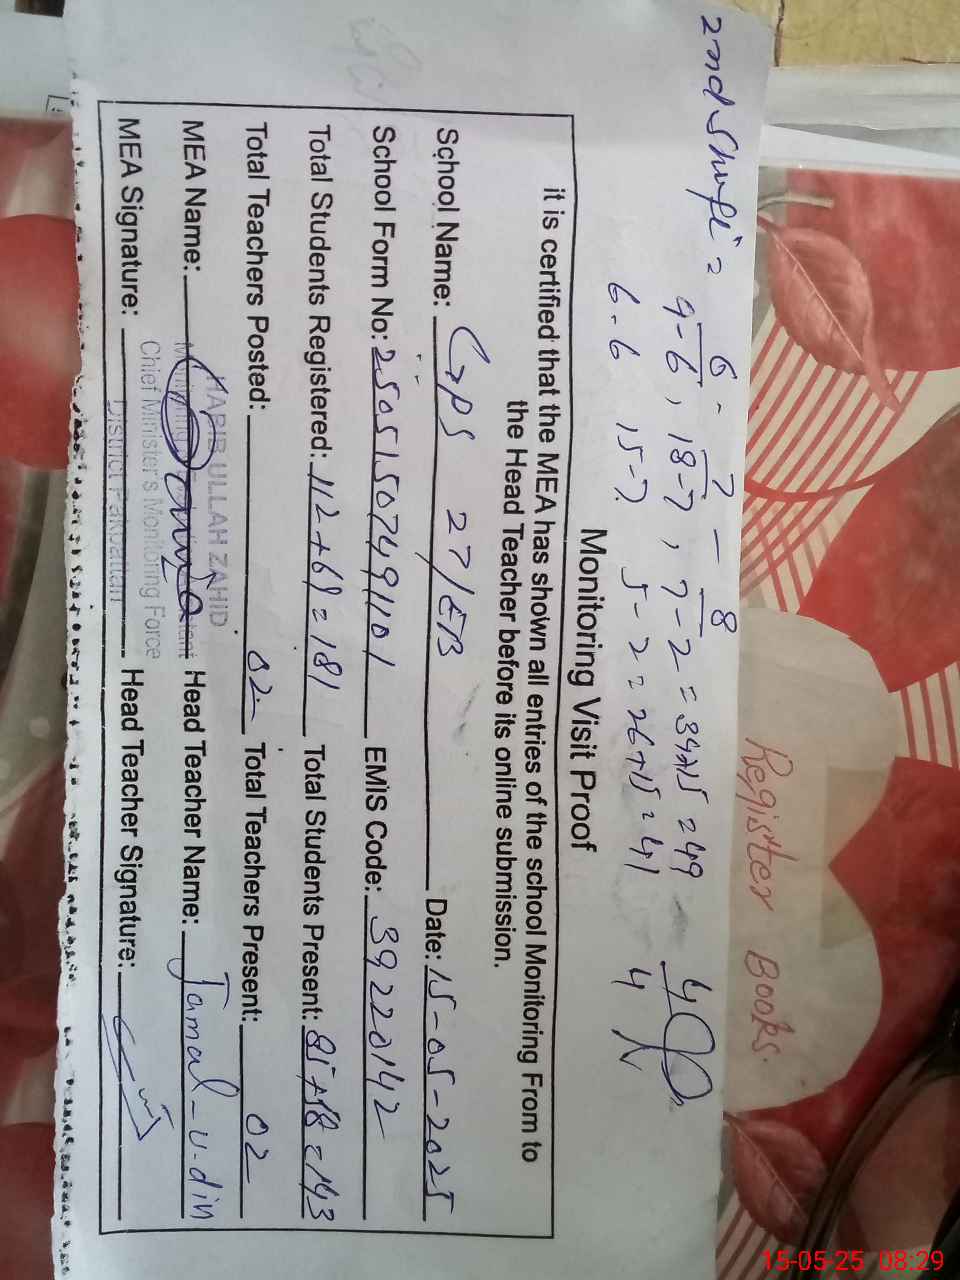 2nd Shift =
6 - 7 - 8
9-6, 18-7, 7-2 = 34+15 = 49
6-6 15-7 5-2 = 26+15 = 41 4
Register Books.
Monitoring Visit Proof
it is certified that the MEA has shown all entries of the school Monitoring From to
the Head Teacher before its online submission.
School Name: GPS 27/EB Date: 15-05-2025
School Form No: 250515074911101 EMIS Code: 39220142
Total Students Registered: 112+69=181 Total Students Present: 143
Total Teachers Posted: 02 Total Teachers Present: 02
MEA Name: HABIB ULLAH ZAHID Head Teacher Name: Jamal-u-din
Chief Minister's Monitoring Force
MEA Signature: District Pakpattan Head Teacher Signature:
15-05-25 08:29